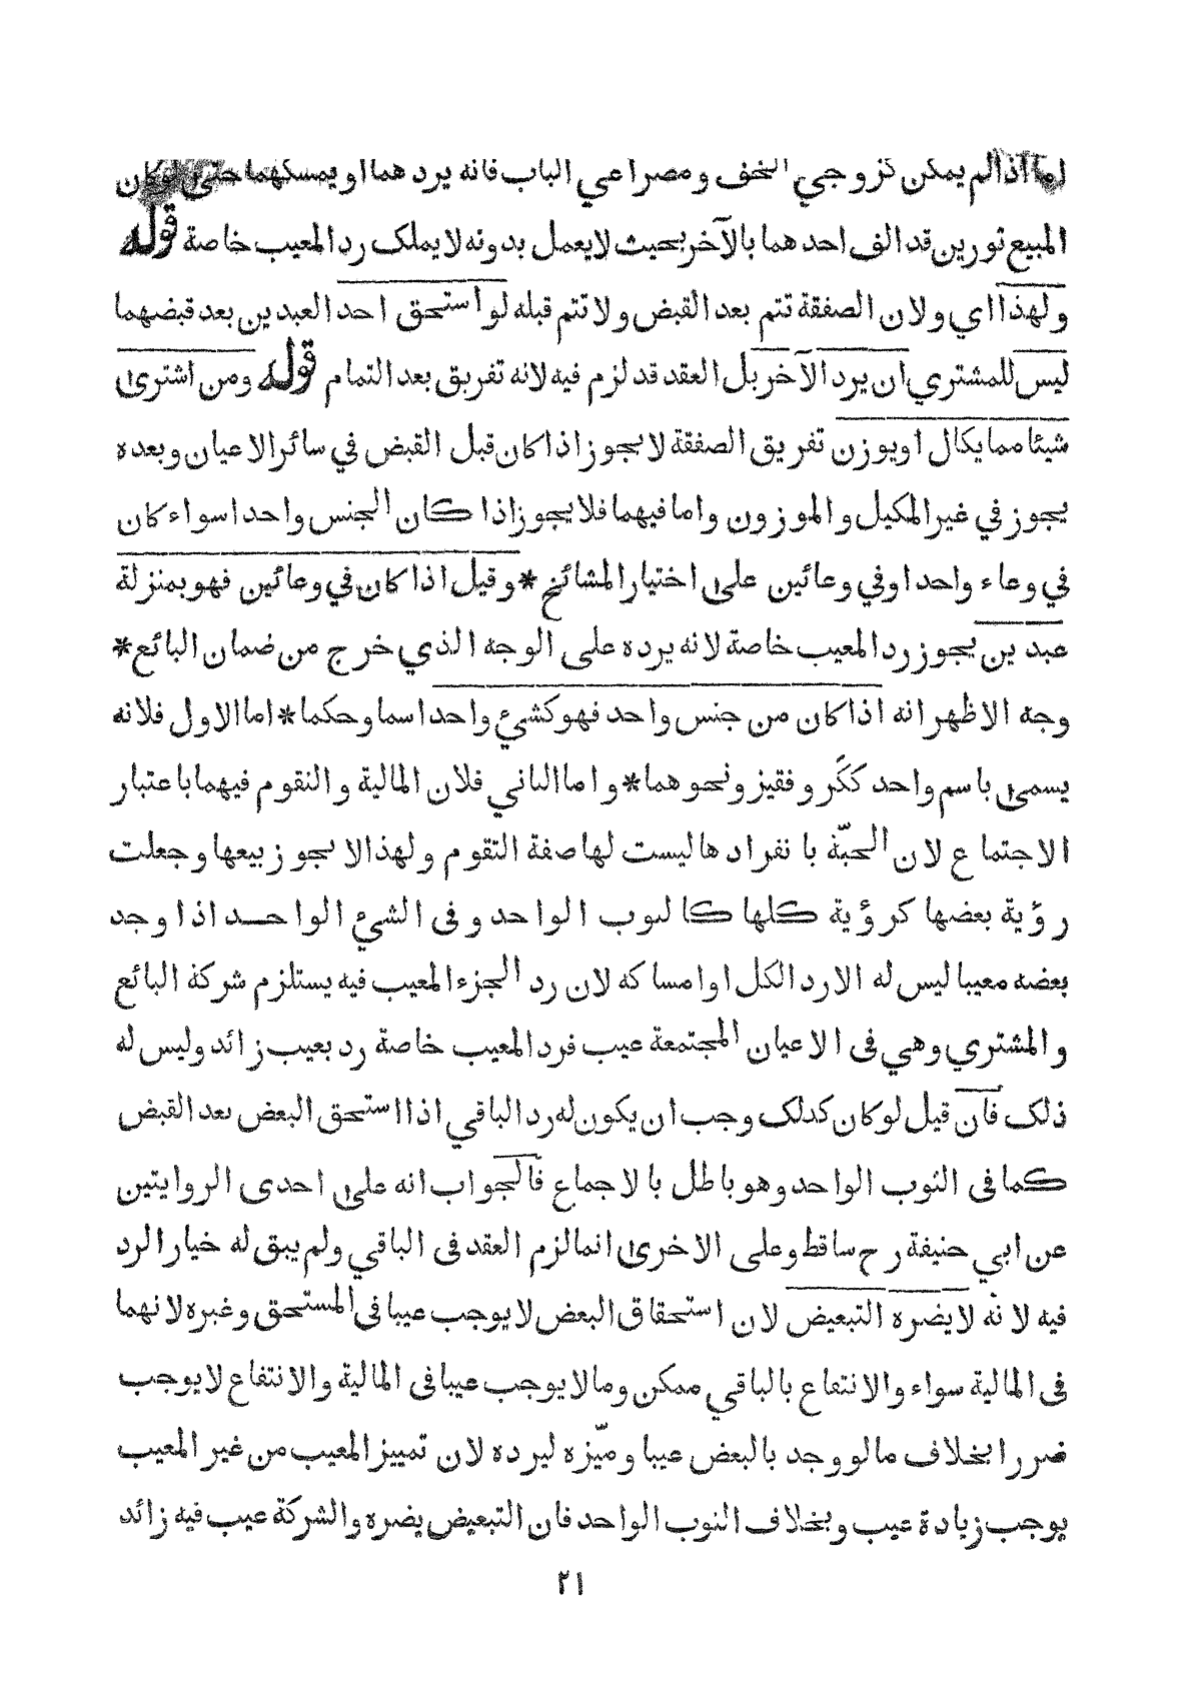 اما اذا لم يمكن كزوجي الخف ومصراعي الباب فانه يردهما او يمسكهما حتى لو كان
المبيع ثورين قد الف احدهما بالآخر بحيث لا يعمل بدونه لا يملك رد المعيب خاصة قوله
ولهذا اي ولان الصفقة تتم بعد القبض ولا تتم قبله لو استحق احد العبدين بعد قبضهما
ليس للمشتري ان يرد الآخر بل العقد قد لزم فيه لانه تفريق بعد التمام قوله ومن اشترى
شيئا مما يكال او يوزن تفريق الصفقة لا يجوز اذا كان قبل القبض في سائر الاعيان وبعده
يجوز في غير المكيل والموزون واما فيهما فلا يجوز اذا كان الجنس واحدا سواء كان
في وعاء واحد او في وعائين على اختيار المشائخ * وقيل اذا كان في وعائين فهو بمنزلة
عبدين يجوز رد المعيب خاصة لانه يرده على الوجه الذي خرج من ضمان البائع *
وجه الاظهر انه اذا كان من جنس واحد فهو كشيء واحد اسما وحكما * اما الاول فلانه
يسمى باسم واحد ككر وقفيز ونحوهما * واما الثاني فلان المالية والتقوم فيهما باعتبار
الاجتماع لان الحبّة بانفرادها ليست لها صفة التقوم ولهذا لا يجوز بيعها وجعلت
رؤية بعضها كرؤية كلها كالثوب الواحد وفى الشيء الواحد اذا وجد
بعضه معيبا ليس له الا رد الكل او امساكه لان رد الجزء المعيب فيه يستلزم شركة البائع
والمشتري وهي فى الاعيان المجتمعة عيب فرد المعيب خاصة رد بعيب زائد وليس له
ذلك فان قيل لو كان كذلك وجب ان يكون له رد الباقي اذا استحق البعض بعد القبض
كما فى الثوب الواحد وهو باطل بالاجماع فالجواب انه على احدى الروايتين
عن ابي حنيفة رح ساقط وعلى الاخرى انما لزم العقد فى الباقي ولم يبق له خيار الرد
فيه لانه لا يضره التبعيض لان استحقاق البعض لا يوجب عيبا فى المستحق وغيره لانهما
فى المالية سواء والانتفاع بالباقي ممكن وما لا يوجب عيبا فى المالية والانتفاع لا يوجب
ضررا بخلاف ما لو وجد بالبعض عيبا وميّزه ليرده لان تمييز المعيب من غير المعيب
يوجب زيادة عيب وبخلاف الثوب الواحد فان التبعيض يضره والشركة عيب فيه زائد
٢١